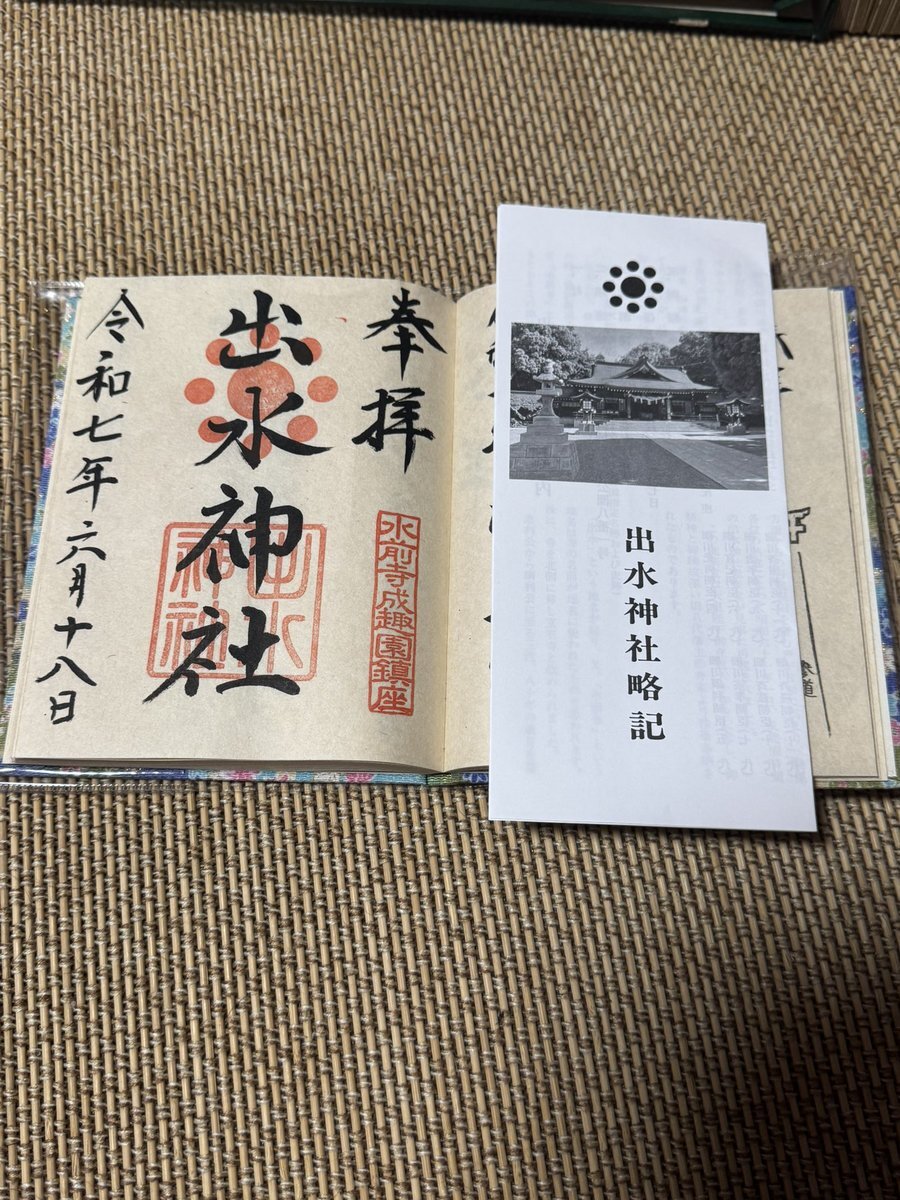 奉拝
水前寺成趣園鎮座
出水神社
出水神社
令和七年六月十八日
出水神社略記
参道